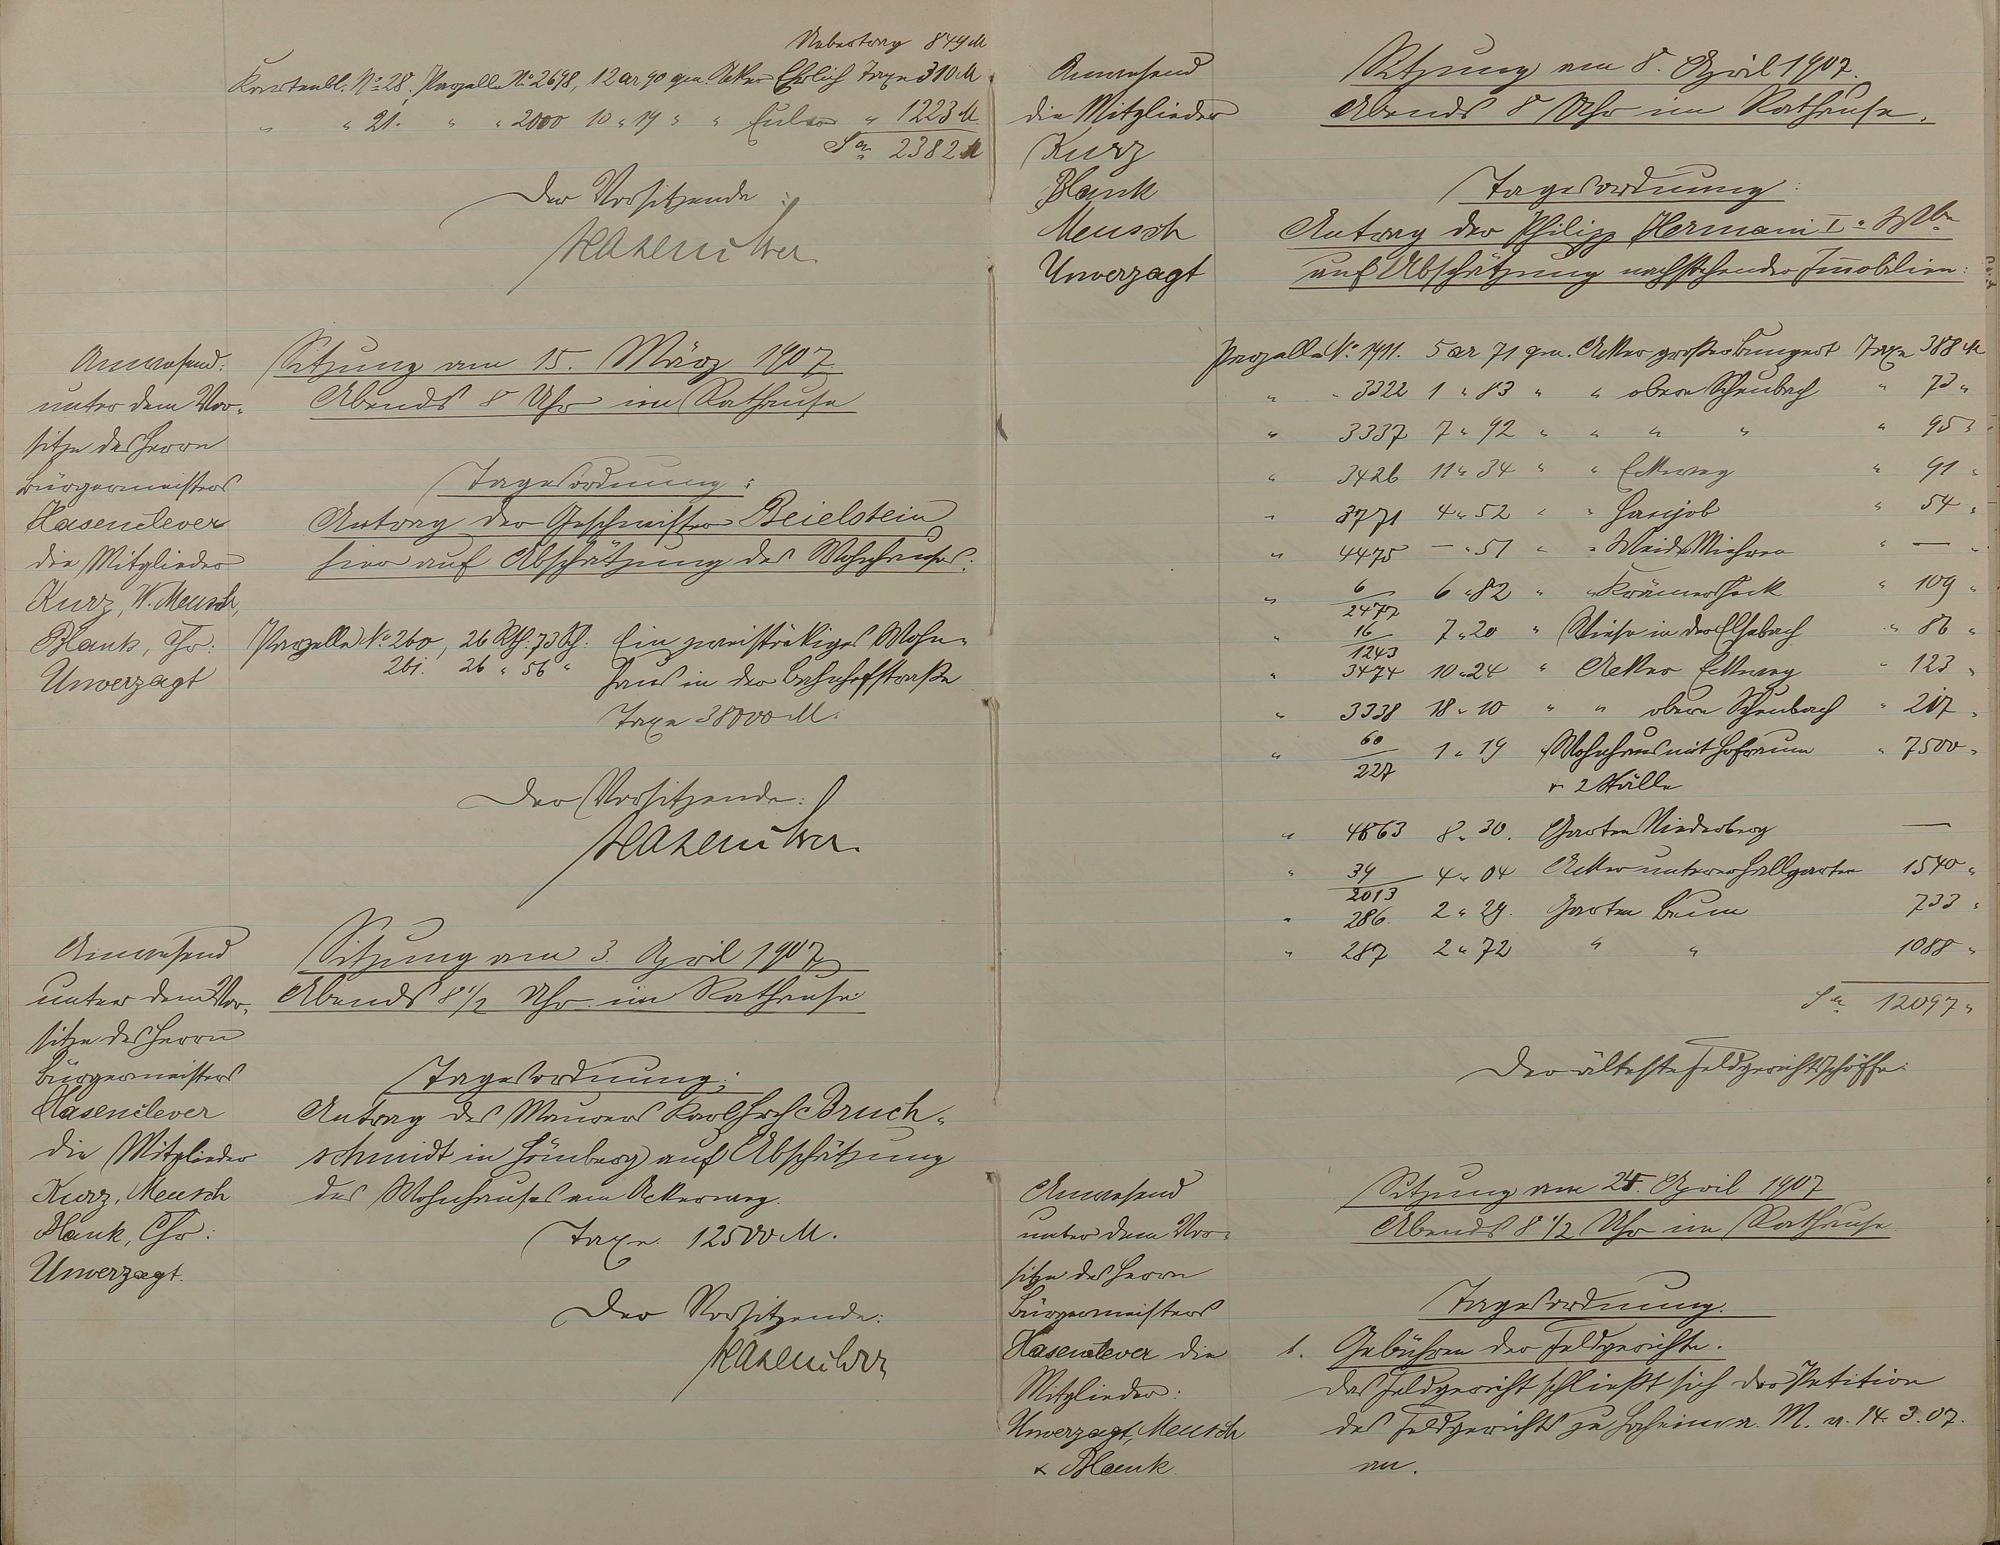 Uebertrag 849 M
Kartenbl. No 28. Parzelle No 2698, 12 ar 90 qm. Acker Ehrlich Taxe 310 M
" " 21. " " 2000 10 " 19 " " " 1223 M
Sa 2382 M
Der Vorsitzende:
Hasenclever
Anwesend:
unter dem Vor-
sitze des Herrn
Bürgermeisters
Hasenclever
die Mitglieder
Kurz, W. Meusch,
Blank, Chr.
Unverzagt
Sitzung am 15. März 1907
Abends 8 Uhr im Rathause
Tagesordnung:
Antrag der Geschwister Beielstein
hier auf Abschätzung des Wohnhauses:
Parzelle No 260, 26 Rth. 73 Sch. Ein zweistöckiges Wohn-
261. 26 " 56 " haus in der Bahnhofstraße
Taxe 38000 M.
Der Vorsitzende:
Hasenclever
Anwesend
unter dem Vor-
sitze des Herrn
Bürgermeisters
Hasenclever
die Mitglieder
Kurz, Meusch
Blank, Chr:
Unverzagt.
Sitzung am 3. April 1907
Abends 8 1/2 Uhr im Rathause
Tagesordnung:
Antrag des Maurers Karl Bruch-
schmidt in Hömberg auf Abschätzung
des Wohnhauses am Ackerweg.
Taxe 12500 M.
Der Vorsitzende:
Hasenclever
Anwesend
die Mitglieder
Kurz
Blank
Meusch
Unverzagt
Sitzung am 8. April 1907.
Abends 8 Uhr im Rathause.
Tagesordnung:
Antrag der Philipp Hermani I. Wwe
auf Abschätzung nachstehender Immobilien:
Parzelle No 1911. 5 ar 71 qm. Acker großer Bungert Taxe 388 M
" " 3322 1 " 83 " " obere Scheubach " 73 "
" 3337 7 " 92 " " " " " 95 "
" 3426 11 " 34 " " Eckweg " 91 "
" 3771 4 " 52 " " " 54 "
" 4475 — " 51 " " " — "
" 6/2477 6 " 82 " " Krämersheck " 109 "
" 16/1243 7 " 20 " Wiese in der Elsebach " 86 "
" 3474 10 " 24 " Acker Eckweg " 123 "
" 3338 18 " 10 " " obere Scheubach " 217 "
" 60/227 1 " 19 Wohnhaus mit Hofraum " 7500 "
& 2 Ställe
" 4863 8 " 30. Garten Niederberg —
" 39/2013 4 " 04 Acker unterer Hallgarten 1540 "
" 286 2 " 29. Garten Baum 733 "
" 287 2 " 72 " " 1088 "
Sa 12097 "
Der älteste Feldgerichtsschöffe:
Anwesend
unter dem Vor-
sitze des Herrn
Bürgermeisters
Hasenclever die
Mitglieder:
Unverzagt, Meusch
& Blank
Sitzung am 24. April 1907
Abends 8 1/2 Uhr im Rathause
Tagesordnung.
1. Gebühren der Feldgerichte.
Das Feldgericht schließt sich der Petition
des Feldgerichts zu a. M. v. 14.3.07.
an.